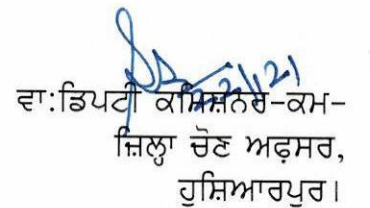 ਵਾ:ਡਿਪਟੀ ਕਮਿਸ਼ਨਰ-ਕਮ-
ਜ਼ਿਲ੍ਹਾ ਚੋਣ ਅਫ਼ਸਰ,
ਹੁਸ਼ਿਆਰਪੁਰ।